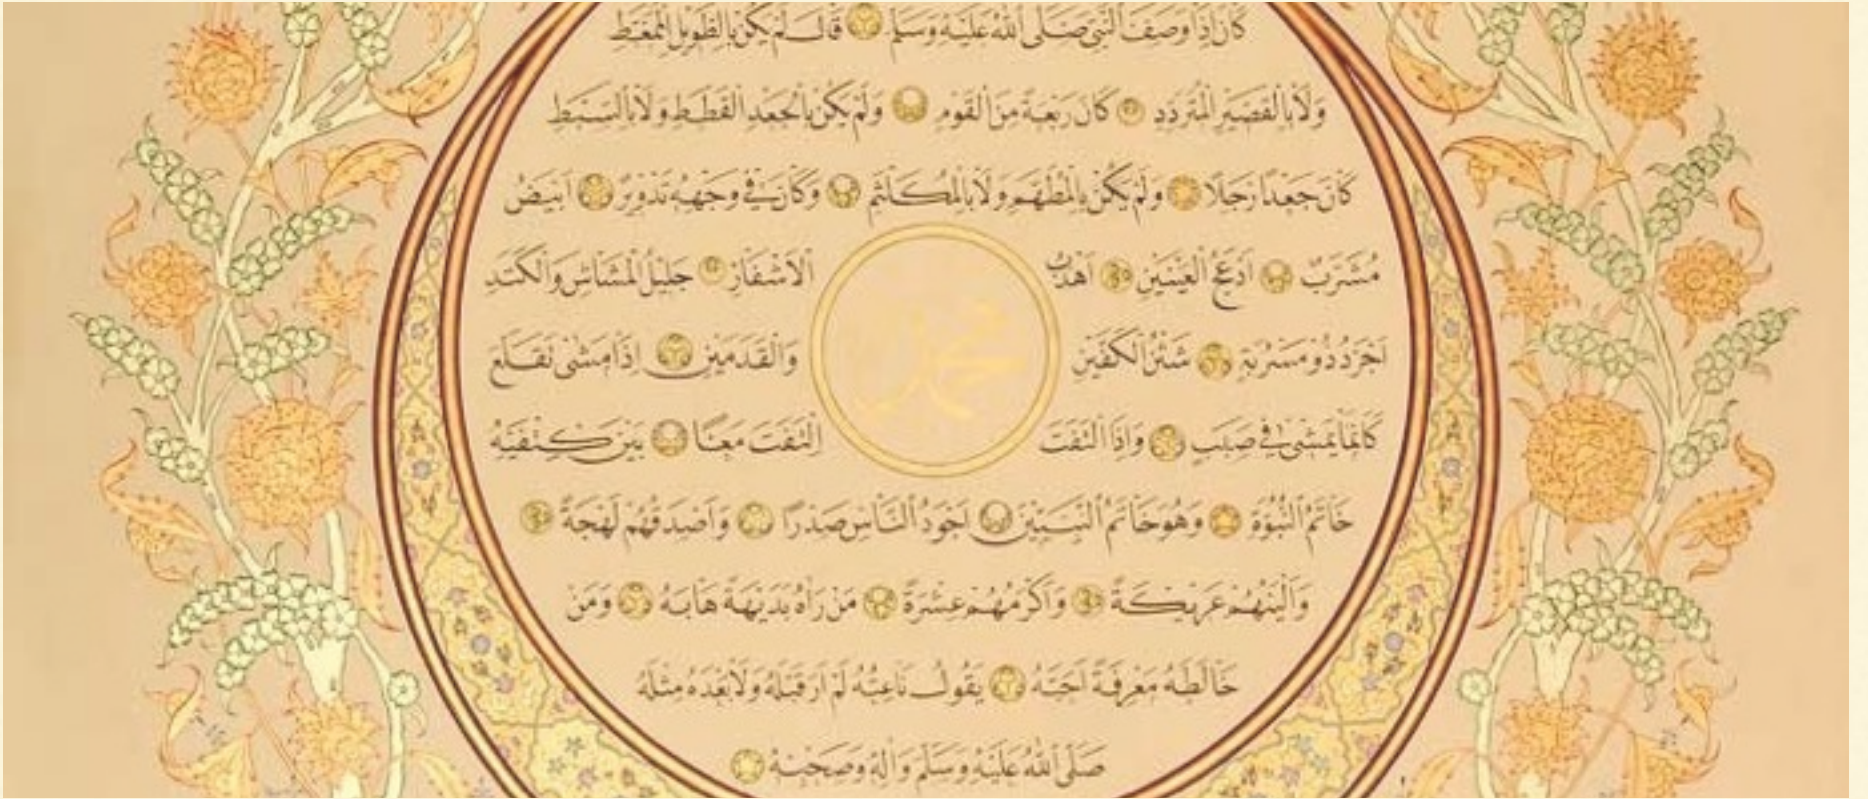 كَانَ إِذَا وَصَفَ النَّبِيَّ صَلَّى اللهُ عَلَيْهِ وَسَلَّمَ قَالَ لَمْ يَكُنْ بِالطَّوِيلِ الْمُمَّغَطِ
وَلَا بِالْقَصِيْرِ الْمُتَرَدِّدِ كَانَ رَبْعَةً مِنَ الْقَوْمِ وَلَمْ يَكُنْ بِالْجَعْدِ الْقَطَطِ وَلَا بِالسَّبْطِ
كَانَ جَعْدًا رَجِلًا وَلَمْ يَكُنْ بِالْمُطَهَّمِ وَلَا بِالْمُكَلْثَمِ وَكَانَ فِي وَجْهِهِ تَدْوِيرٌ أَبْيَضُ
مُشْرَبٌ أَدْعَجُ الْعَيْنَيْنِ أَهْدَبُ الْأَشْفَارِ جَلِيلُ الْمُشَاشِ وَالْكَتَدِ
أَجْرَدُ ذُو مَسْرُبَةٍ شَثْنُ الْكَفَّيْنِ وَالْقَدَمَيْنِ إِذَا مَشَى تَقَلَّعَ
كَأَنَّمَا يَمْشِي فِي صَبَبٍ وَإِذَا الْتَفَتَ الْتَفَتَ مَعًا بَيْنَ كَتِفَيْهِ
خَاتَمُ النُّبُوَّةِ وَهُوَ خَاتَمُ النَّبِيِّينَ أَجْوَدُ النَّاسِ صَدْرًا وَأَصْدَقُهُمْ لَهْجَةً
وَأَلْيَنُهُمْ عَرِيكَةً وَأَكْرَمُهُمْ عِشْرَةً مَنْ رَآهُ بَدِيهَةً هَابَهُ وَمَنْ
خَالَطَهُ مَعْرِفَةً أَحَبَّهُ يَقُولُ نَاعِتُهُ لَمْ أَرَ قَبْلَهُ وَلَا بَعْدَهُ مِثْلَهُ
صَلَّى اللهُ عَلَيْهِ وَسَلَّمَ وَآلِهِ وَصَحْبِهِ
محمد